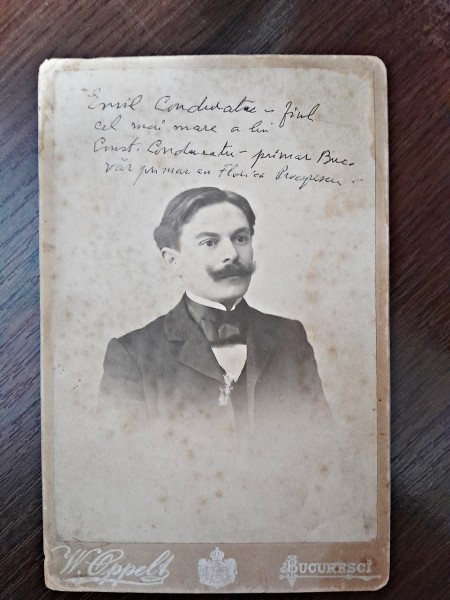 Emil Conduratu - fiul
cel mai mare a lui
Const. Conduratu - primar Buc.
văr primar cu Florica
W. Oppelt
BUCURESCI